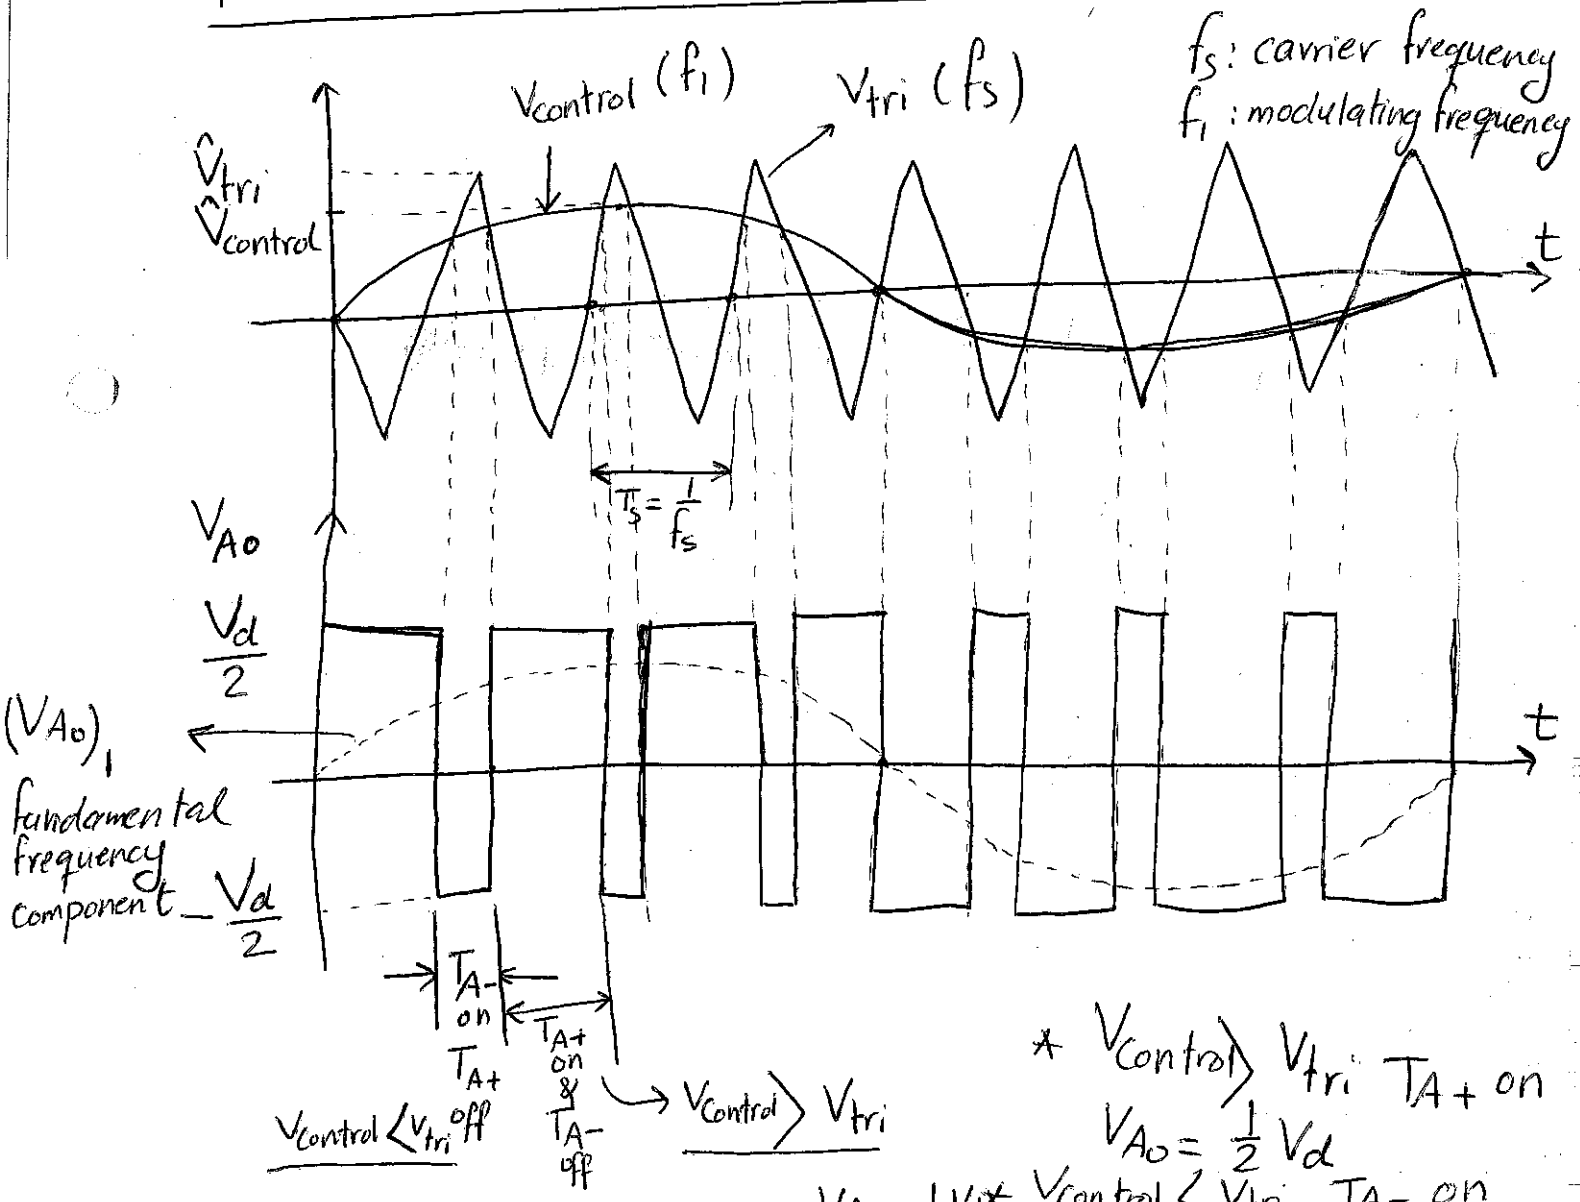 fs: carrier frequency
f1: modulating frequency
Vcontrol (f1)
Vtri (fs)
V̂tri
V̂control
t
Ts = 1/fs
VAo
Vd/2
(VAo)1
fundamental
frequency
component
-Vd/2
t
TA-
on
TA+
off
TA+
on
&
TA-
off
Vcontrol < Vtri
Vcontrol > Vtri
* Vcontrol > Vtri TA+ on
VAo = 1/2 Vd
Vcontrol < Vtri TA- on